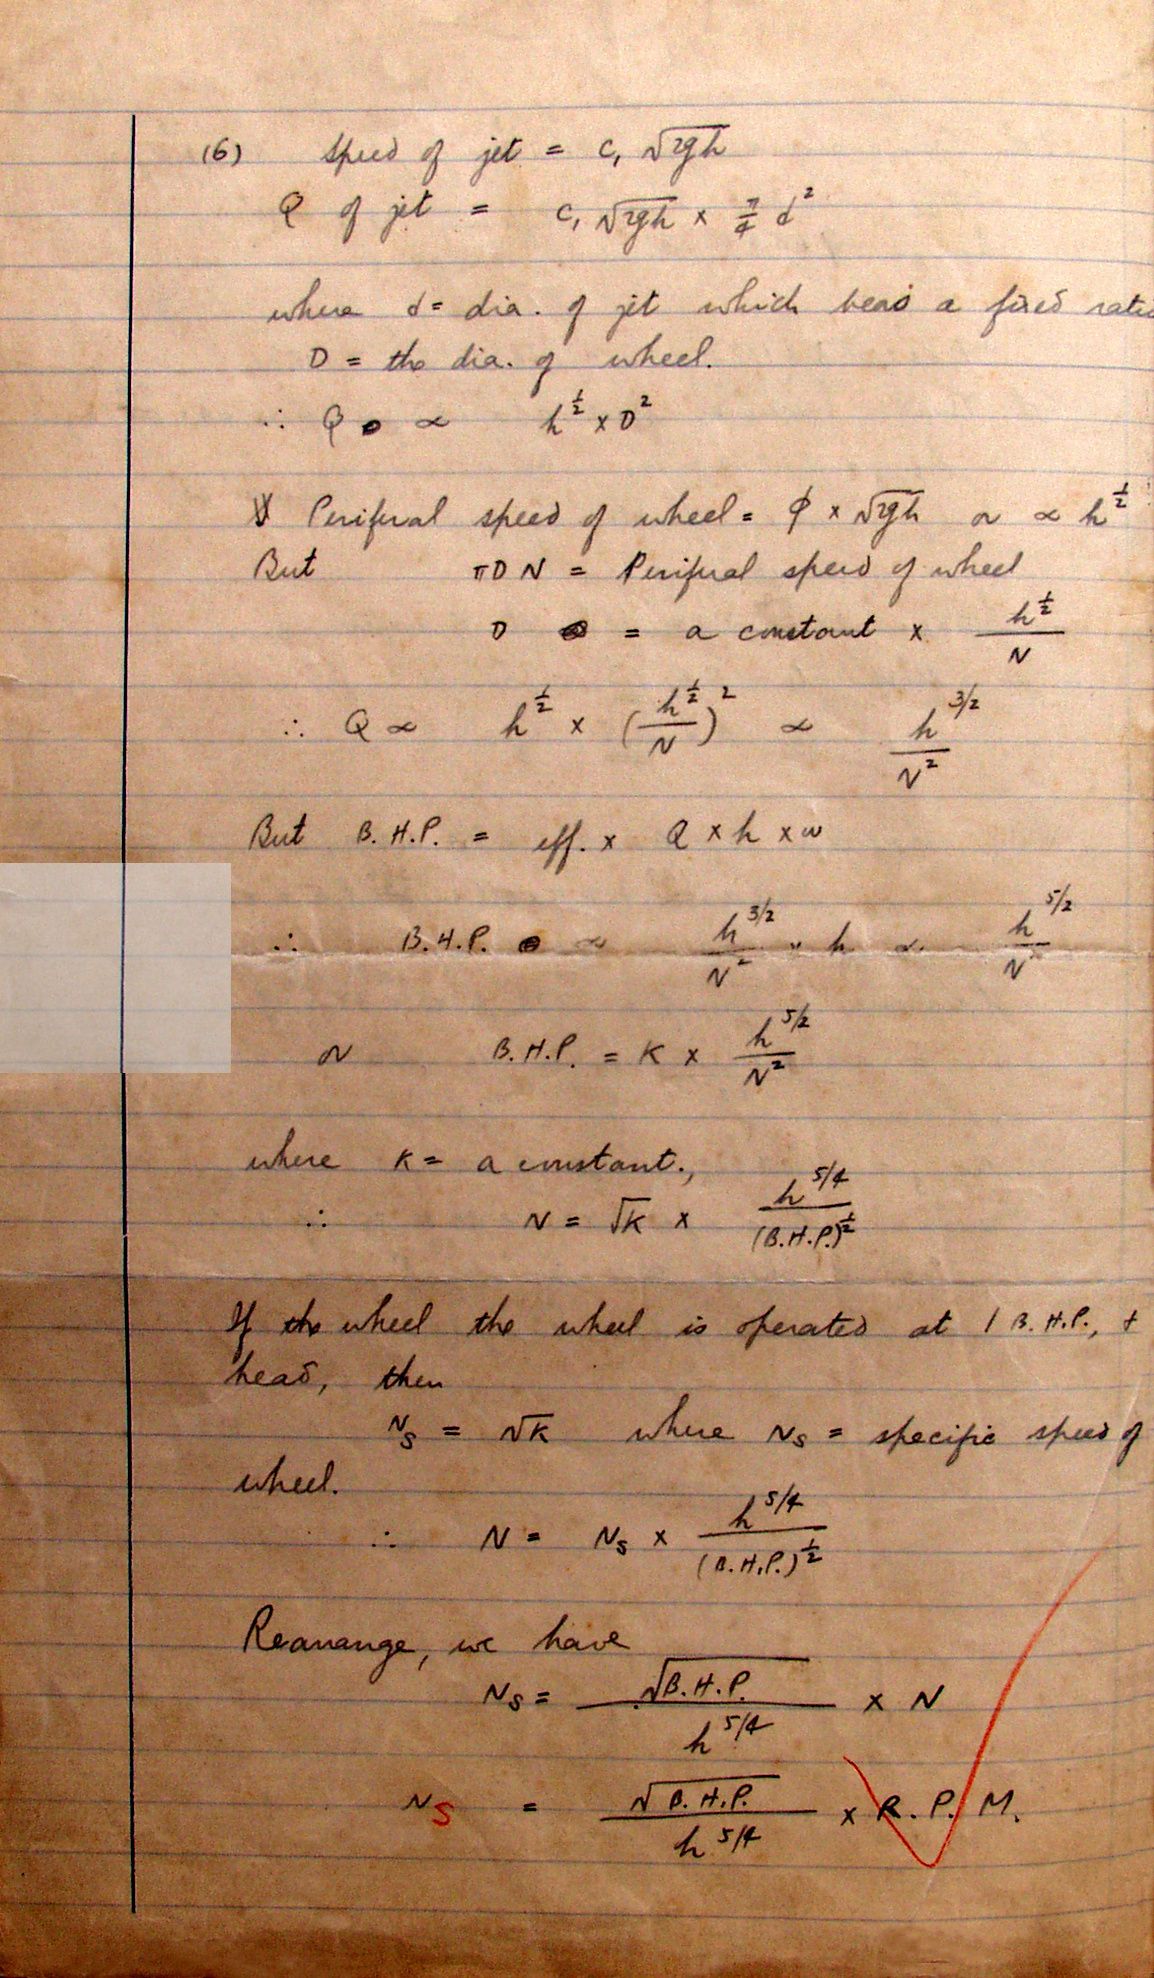 (6) speed of jet = C₁ √2gh
Q of jet = C₁ √2gh × π/4 d²
where d = dia. of jet which bears a fixed ratio
D = the dia. of wheel.
∴ Q ∝ h^½ × D²
Periferal speed of wheel = φ × √2gh or ∝ h^½
But πDN = Periferal speed of wheel
D = a constant × h^½/N
∴ Q ∝ h^½ × (h^½/N)² ∝ h^3/2/N²
But B.H.P. = eff. × Q × h × w
∴ B.H.P. ∝ h^3/2/N² × h ∝ h^5/2/N²
or B.H.P. = K × h^5/2/N²
where K = a constant.,
∴ N = √K × h^5/4/(B.H.P.)^½
If the wheel the wheel is operated at 1 B.H.P.,
head, then
N_S = √K where N_S = specific speed of
wheel.
∴ N = N_S × h^5/4/(B.H.P.)^½
Rearange, we have
N_S = √B.H.P./h^5/4 × N
N_S = √B.H.P./h^5/4 × R.P.M.